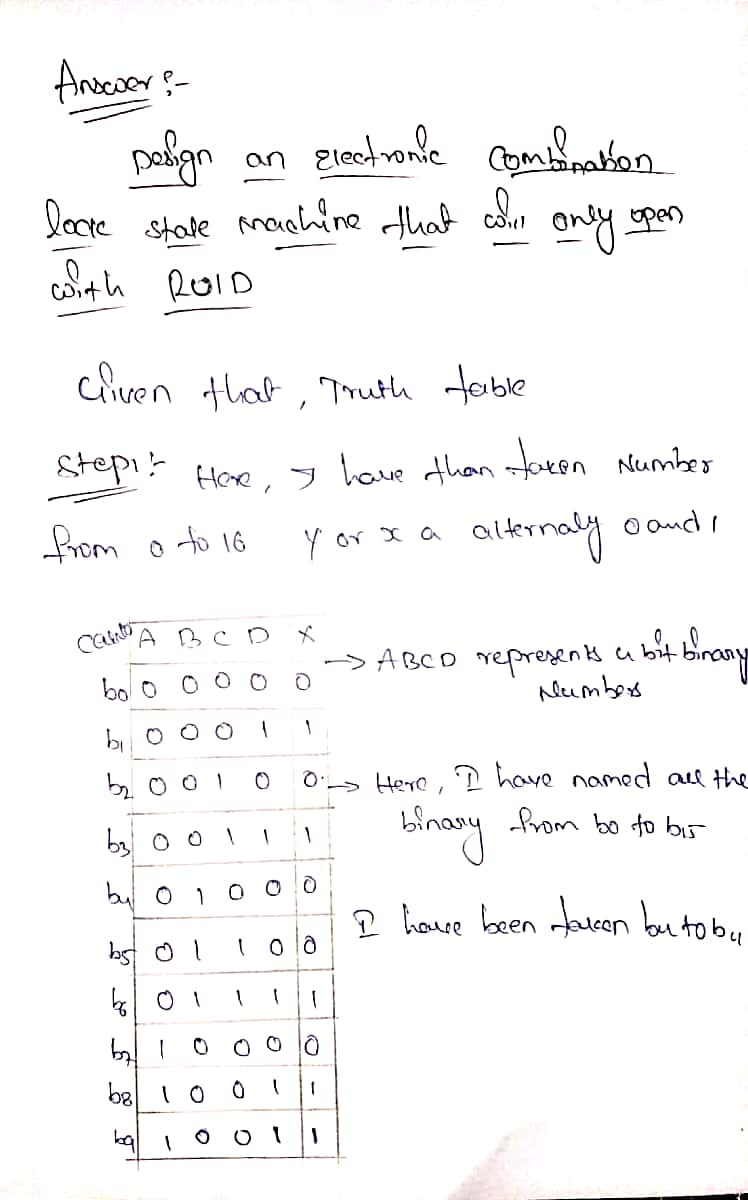 Answer :-
Design an Electronic Combination
lock state machine that will only open
with ROID
Given that, Truth table
Step1:- Here, I have than taken Number
from 0 to 16 Y or x a alternaly 0 and 1
A B C D X
b0 0 0 0 0 0
→ ABCD represents 4 bit binary
Numbers
b1 0 0 0 1 1
b2 0 0 1 0 0
→ Here, I have named all the
binary from b0 to b15
b3 0 0 1 1 1
b4 0 1 0 0 0
I have been taken b4 to b4
b5 0 1 1 0 0
b6 0 1 1 1 1
b7 1 0 0 0 0
b8 1 0 0 1 1
b9 1 0 0 1 1